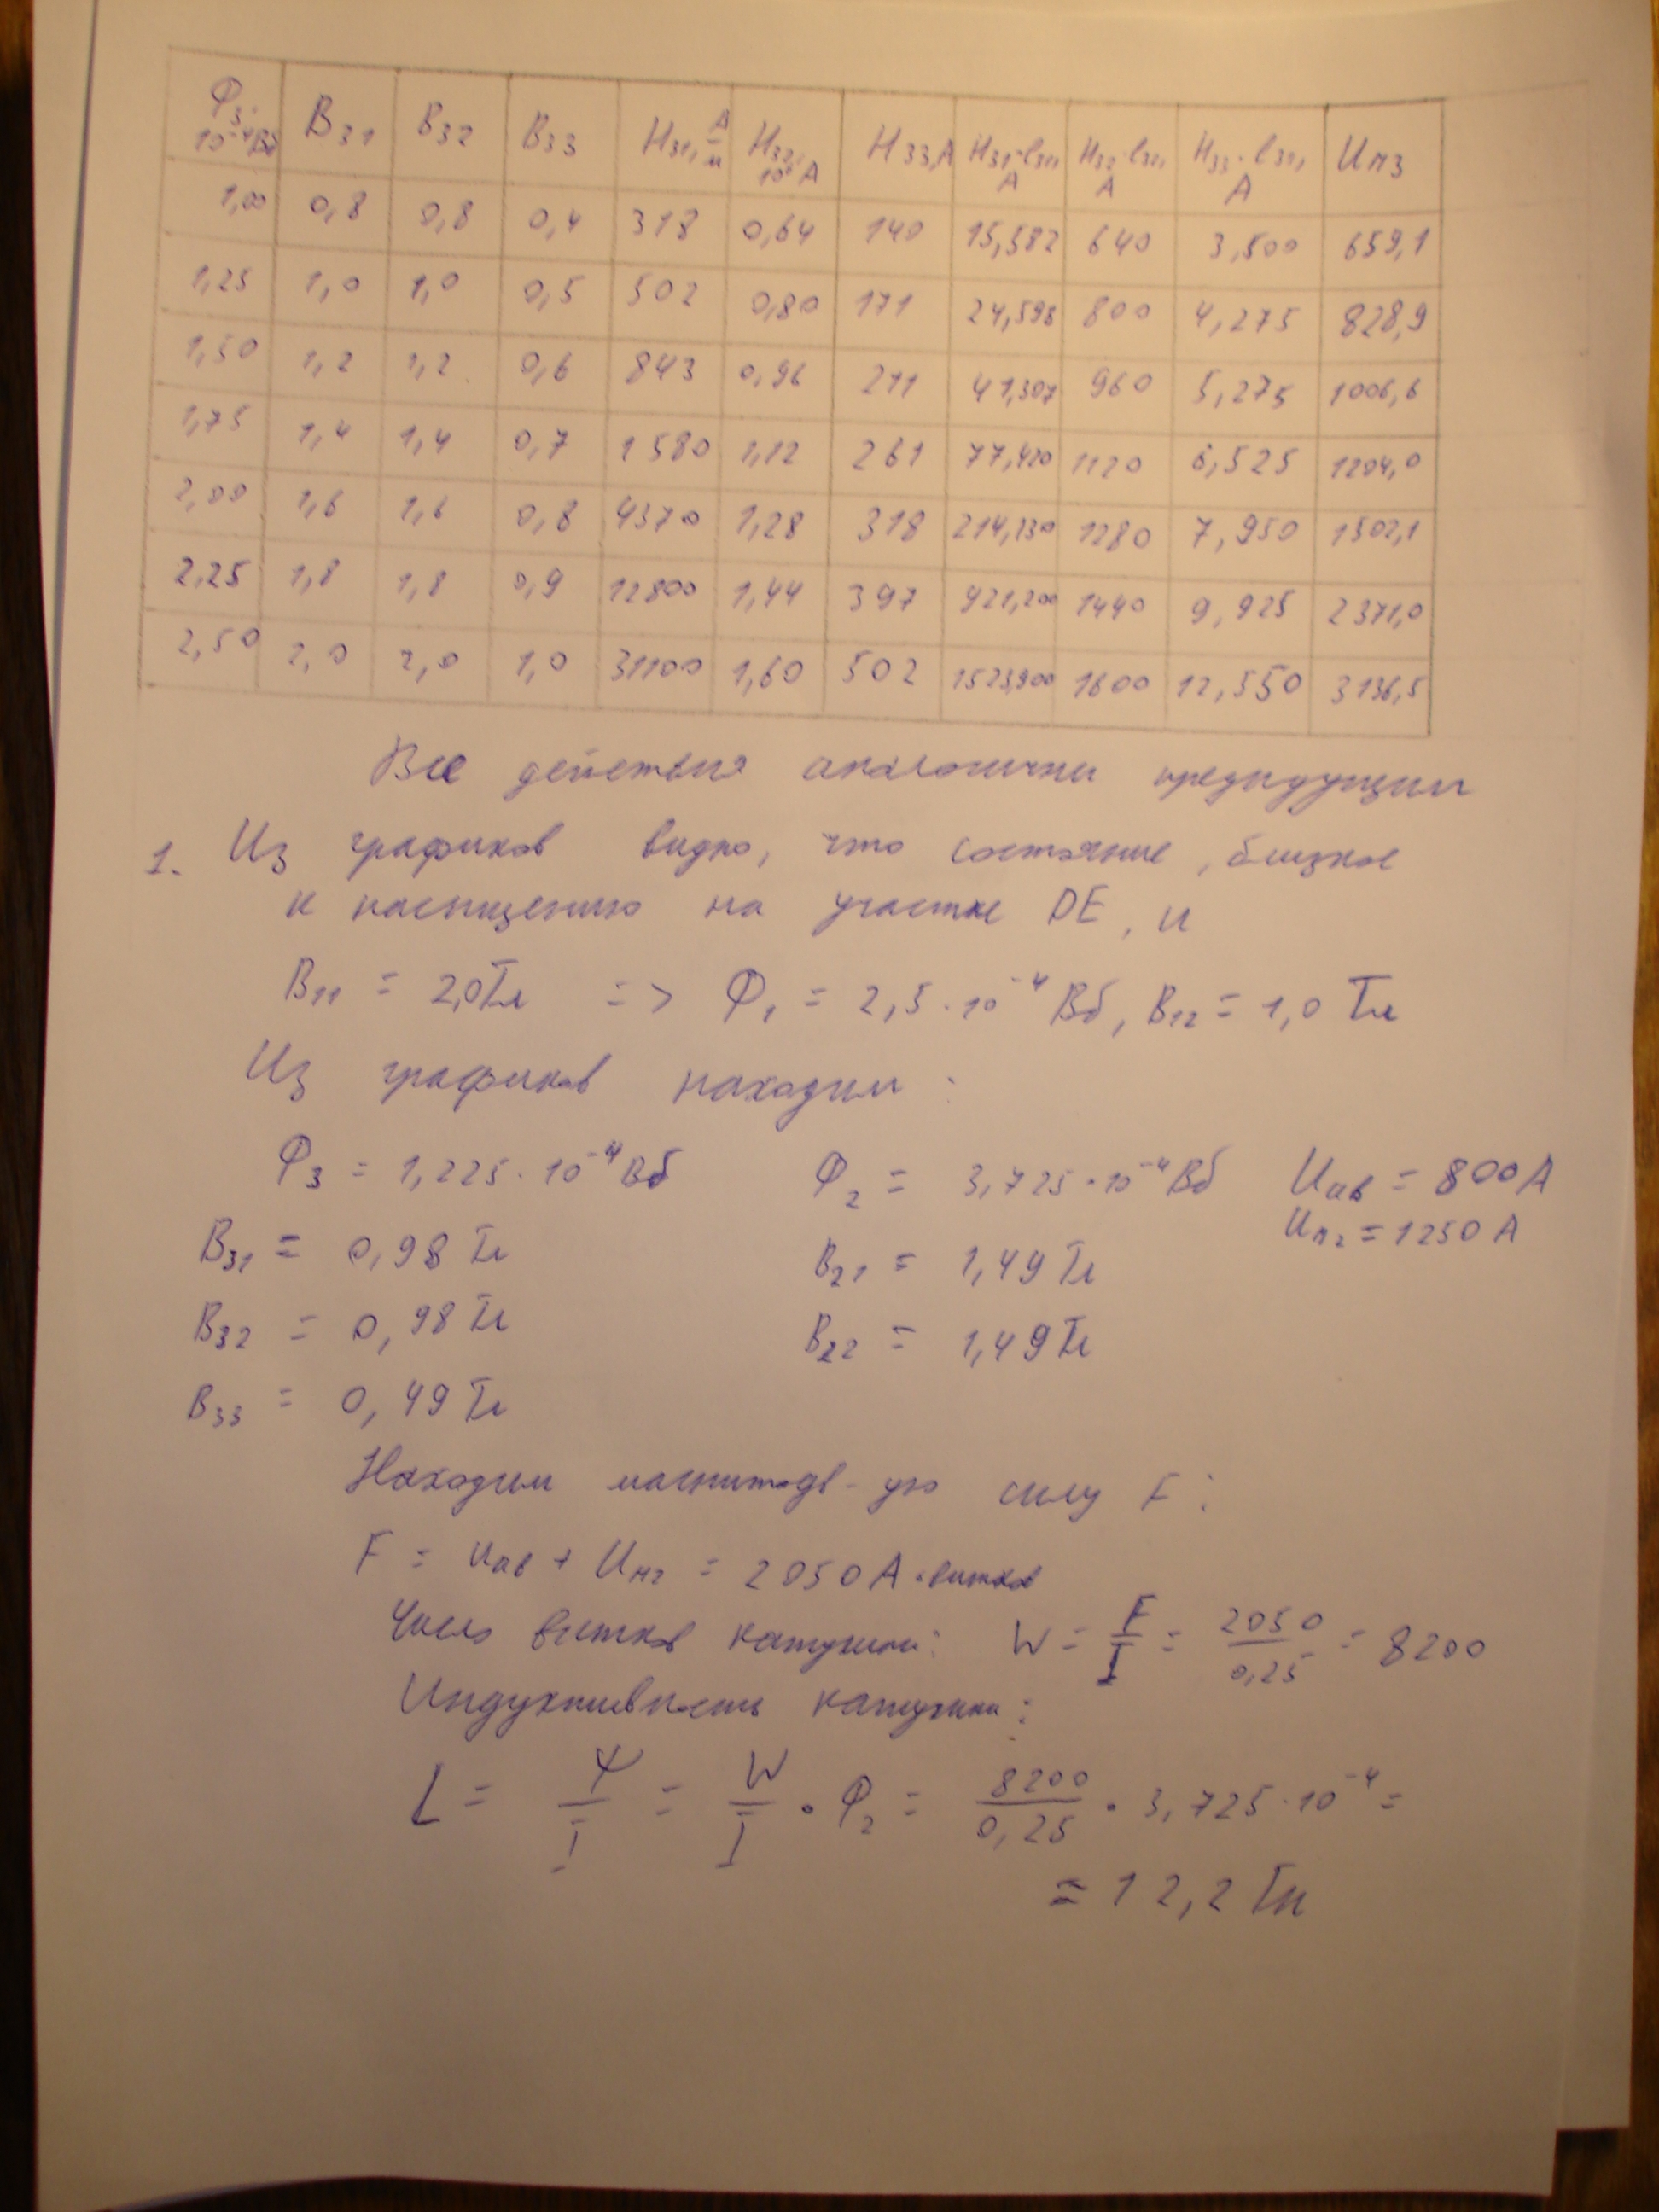 Ф3· 10⁻⁴Вб B31 B32 B33 H31, А/м H32, 10⁶ А H33, А H31·l31, А H32·l32, А H33·l33, А Uм3
1,00 0,8 0,8 0,4 318 0,64 140 15,582 640 3,500 659,1
1,25 1,0 1,0 0,5 502 0,80 171 24,598 800 4,275 828,9
1,50 1,2 1,2 0,6 843 0,96 211 41,307 960 5,275 1006,6
1,75 1,4 1,4 0,7 1580 1,12 261 77,420 1120 6,525 1204,0
2,00 1,6 1,6 0,8 4370 1,28 318 214,130 1280 7,950 1502,1
2,25 1,8 1,8 0,9 12800 1,44 397 921,200 1440 9,925 2371,0
2,50 2,0 2,0 1,0 31100 1,60 502 1523,900 1600 12,550 3136,5
Все действия аналогичны предыдущим
1. Из графиков видно, что состояние, близкое
к насыщению на участке DE, и
B11 = 2,0Тл => Ф1 = 2,5·10⁻⁴ Вб, B12 = 1,0 Тл
Из графиков находим:
Ф3 = 1,225·10⁻⁴ Вб Ф2 = 3,725·10⁻⁴ Вб Uав = 800 А
Uм2 = 1250 А
B31 = 0,98 Тл B21 = 1,49 Тл
B32 = 0,98 Тл B22 = 1,49 Тл
B33 = 0,49 Тл
Находим магнитодв-ую силу F:
F = Uав + Uм2 = 2050 А·витков
Число витков катушки: W = F/I = 2050/0,25 = 8200
Индуктивность катушки:
L = Ψ/I = W/I · Ф2 = 8200/0,25 · 3,725·10⁻⁴ =
= 12,2 Гн